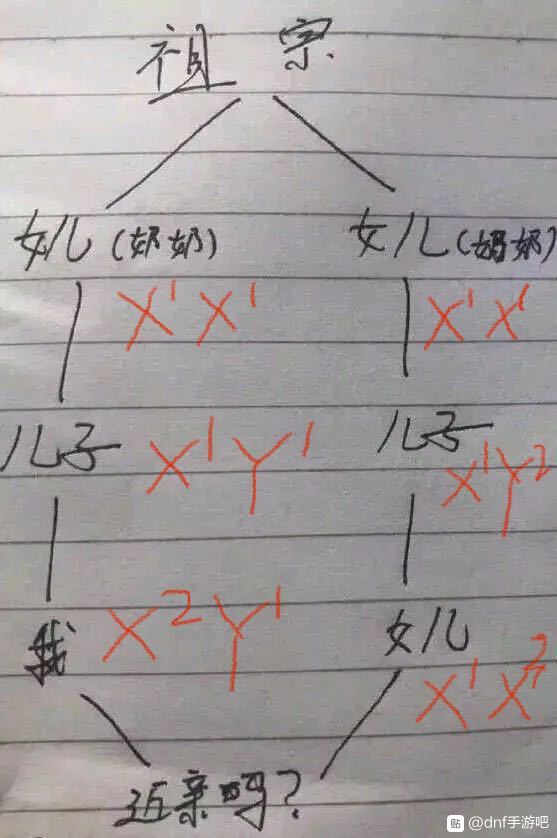 祖宗
女儿(奶奶) 女儿(奶奶)
X¹X¹ X¹X¹
儿子 X¹Y¹ 儿子
X¹Y²
我 X²Y¹ 女儿
X¹X?
近亲吗?
贴 @dnf手游吧